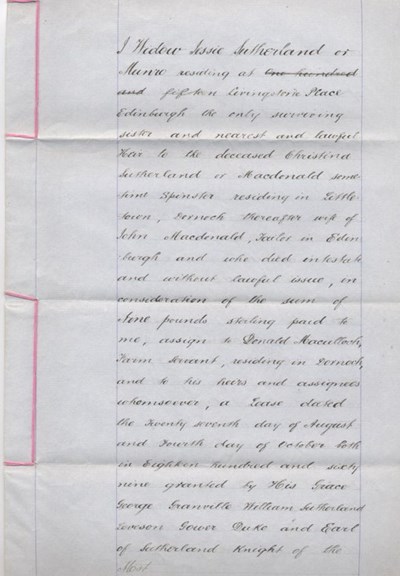 I Widow Jessie Sutherland or
Munro residing at One hundred
and fifteen Livingstone Place
Edinburgh the only surviving
sister and nearest and lawful
Heir to the deceased Christina
Sutherland or Macdonald some-
time Spinster residing in Little-
town, Dornoch thereafter wife of
John Macdonald, Tailor in Edin
burgh and who died intestate
and without lawful issue, in
consideration of the sum of
Nine pounds sterling paid to
me, assign to Donald Macculloch,
Farm Servant, residing in Dornoch,
and to his heirs and assignees
whomsoever, a Lease dated
the Twenty seventh day of August
and Fourth day of October both
in Eighteen hundred and sixty
nine granted by His Grace
George Granville William Sutherland
Leveson Gower Duke and Earl
of Sutherland Knight of the
Most